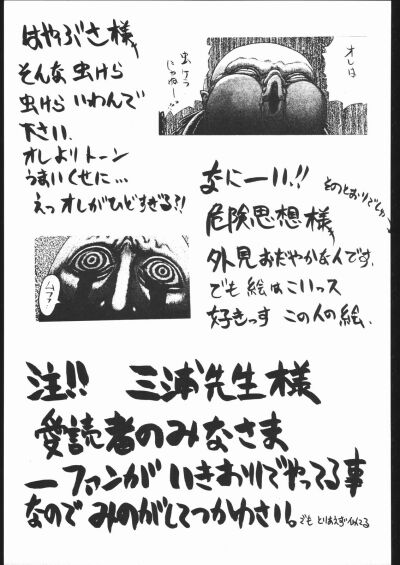 はやぶさ様
そんな虫けら
虫けら いわんで
下さい、
オレよりトーン
うまいくせに…
えっオレがひどすぎる?!
オレは
虫ケラ
じゃねー…
なにーい!!
そのとおりでやっ
危険思想様
外見おだやかな人です、
でも絵はこいっス
好きっす この人の絵、
ムフッ
注!! 三浦先生様
愛読者のみなさま
一ファンが いきおいでやってる事
なので みのがしてつかわさい。
でも とりあえず似てる